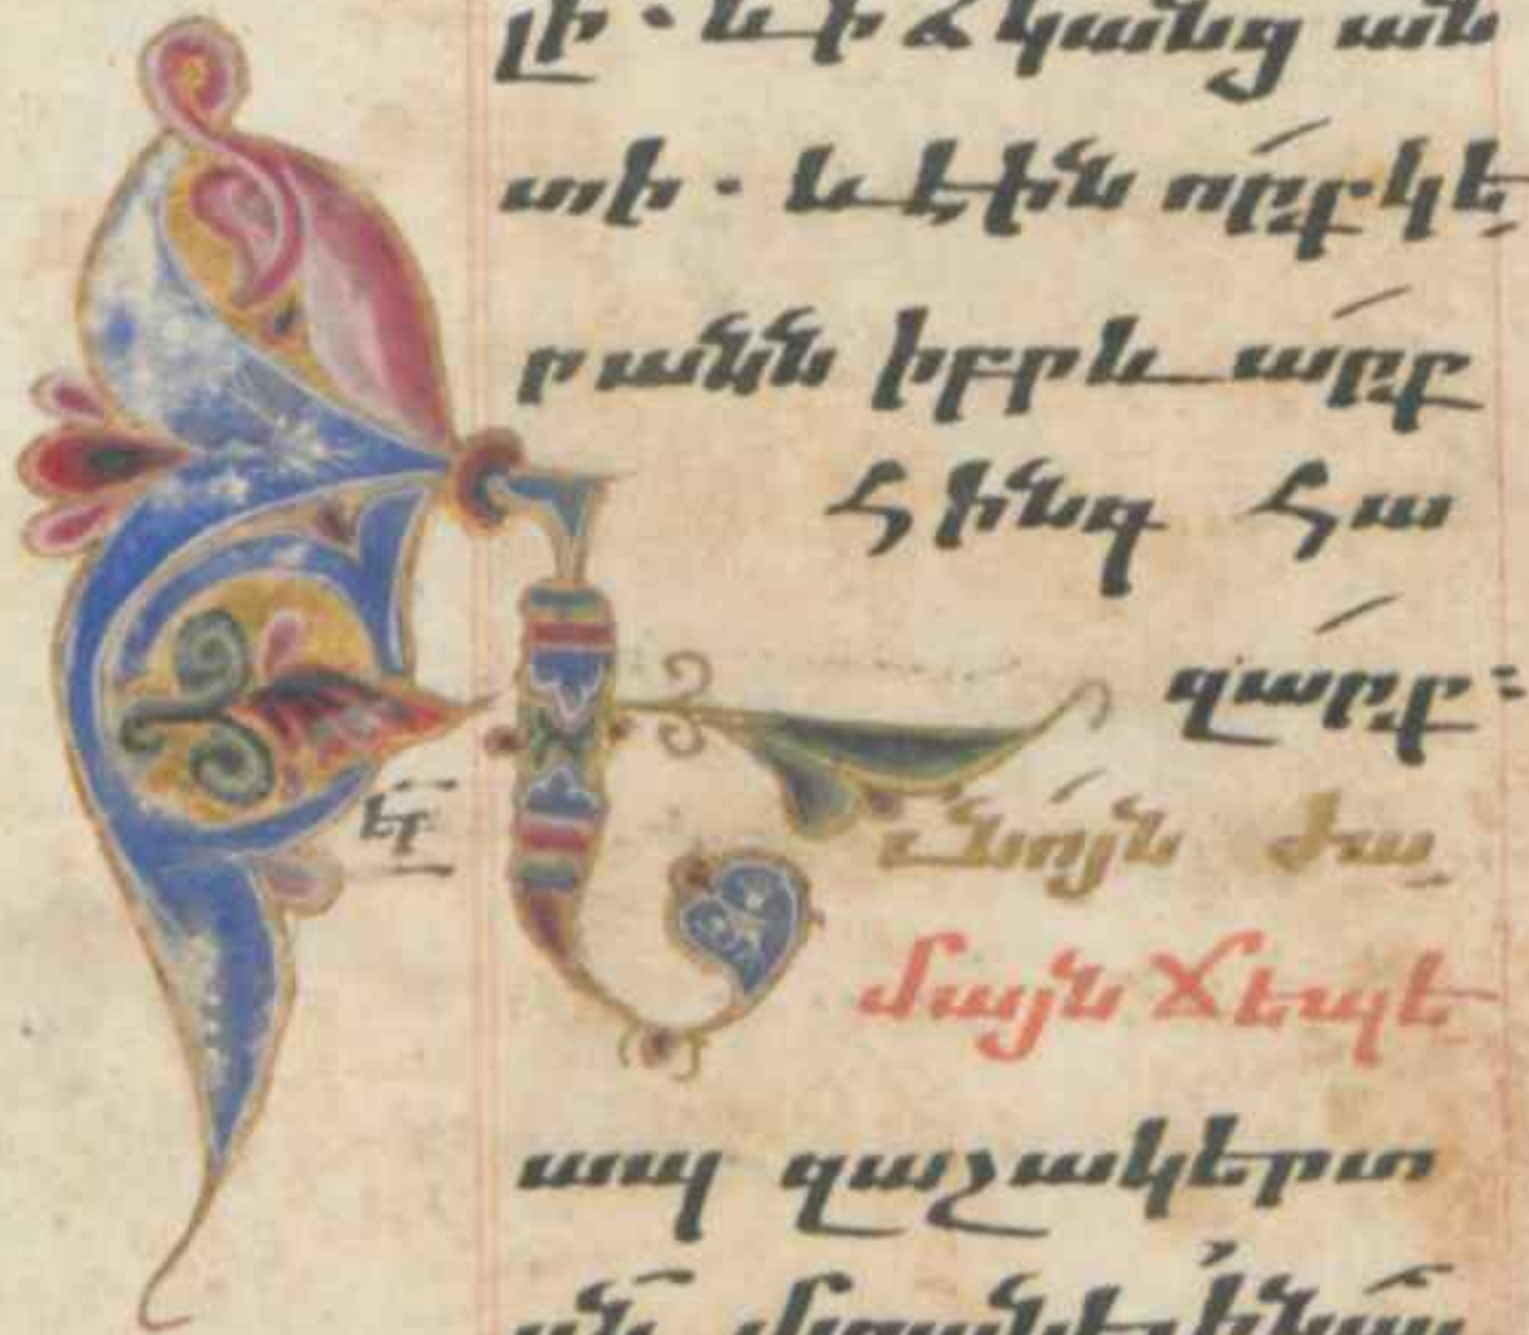 լի · և ի ձկանց ան
տի · և էին որք կե
րանն իբրև արք
հինգ հա
զարք։
Ւ նոյն ժա
մայն ճեպե
աց զաշակերտ
սն մտանել ի նաւ